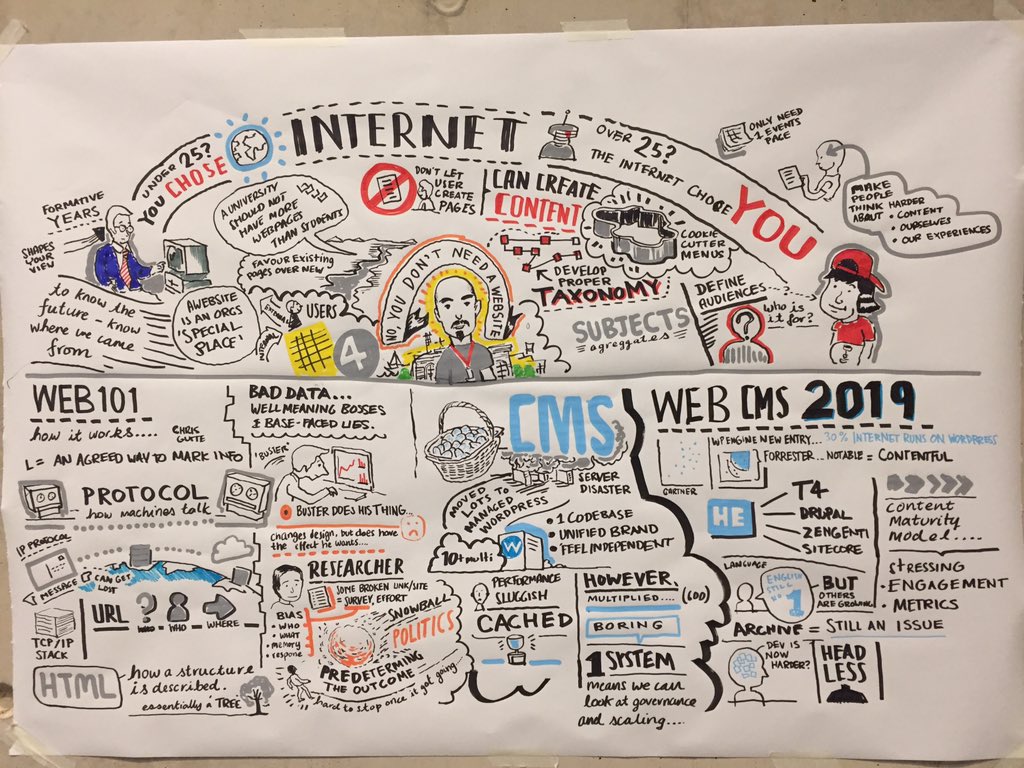 FORMATIVE
YEARS
SHAPES
YOUR
VIEW
UNDER 25?
YOU CHOSE
INTERNET
OVER 25?
THE INTERNET CHOSE
YOU
ONLY NEED
1 EVENTS
PAGE
MAKE
PEOPLE
THINK HARDER
ABOUT • CONTENT
• OURSELVES
• OUR EXPERIENCES
to know the
future - know
where we came
from
A UNIVERSITY
SHOULD NOT
HAVE MORE
WEBPAGES
THAN STUDENTS
FAVOUR EXISTING
PAGES OVER NEW
A WEBSITE
IS AN ORGS
'SPECIAL
PLACE'
EXTERNAL
INTERNAL
USERS
4
DON'T LET
USER
CREATE
PAGES
NO YOU DON'T NEED A WEBSITE
CAN CREATE
CONTENT
COOKIE
CUTTER
MENUS
DEVELOP
PROPER
TAXONOMY
SUBJECTS
agreggates
DEFINE
AUDIENCES
?
Who is
it for?
WEB 101
how it works....
CHRIS
GUTE
L = AN AGREED WAY TO MARK INFO
PROTOCOL
how machines talk
IP PROTOCOL
MESSAGE
CAN GET
LOST
URL
?
WHO
WHERE
TCP/IP
STACK
HTML
how a structure
is described.
essentially a TREE
BAD DATA...
WELL MEANING BOSSES
& BASE-FACED LIES.
'BUSTER'
BUSTER DOES HIS THING...
changes design, but does have
the effect he wants....
RESEARCHER
SOME BROKEN LINK/SITE
= SURVEY, EFFORT
BIAS
• WHO
• WHAT
• memory
• response
SNOWBALL
POLITICS
PREDETERMING
THE OUTCOME
hard to stop once it got going
CMS
SERVER
DISASTER
MOVED
LOTS TO
MANAGED
WORDPRESS
10+ multi
W
• 1 CODEBASE
• UNIFIED BRAND
• FEEL INDEPENDENT
PERFORMANCE
SLUGGISH
CACHED
HOWEVER,
MULTIPLIED.... (600)
BORING
1 SYSTEM
means we can
look at governance
and scaling....
WEB CMS 2019
WPENGINE NEW ENTRY... 30% INTERNET RUNS ON WORDPRESS
FORRESTER... NOTABLE = CONTENTFUL
GARTNER
HE
T4
DRUPAL
ZENGENTI
SITECORE
CONTENT
MATURITY
MODEL....
STRESSING
• ENGAGEMENT
• METRICS
LANGUAGE
ENGLISH
STILL
NO
1
BUT
OTHERS
ARE GROWING
ARCHIVE = STILL AN ISSUE
DEV IS
NOW
HARDER?
HEAD
LESS